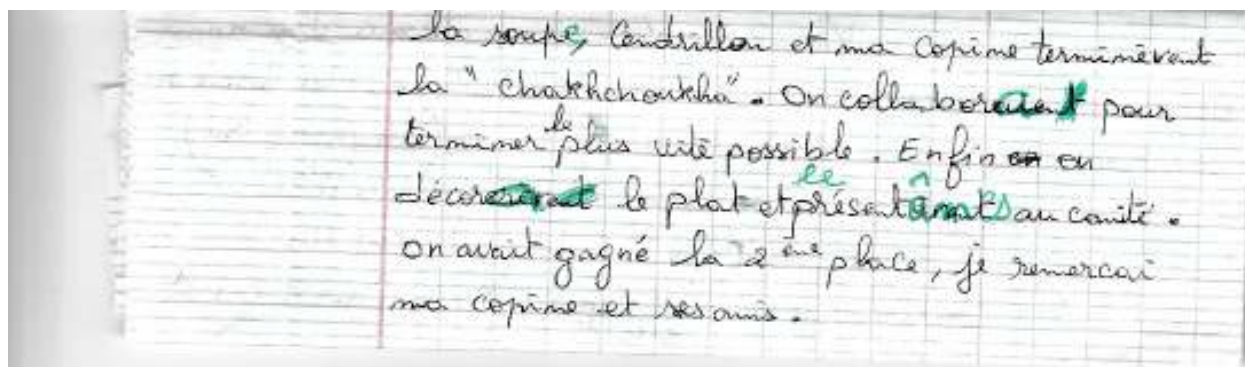 la soupe, Cendrillon et ma copine terminèrent
la "chakhchoukha". On collabora pour
terminer le plus vite possible. Enfin on
décora le plat et le présentâmes au comité.
on avait gagné la 2ème place, je remercai
ma copine et ses amis.